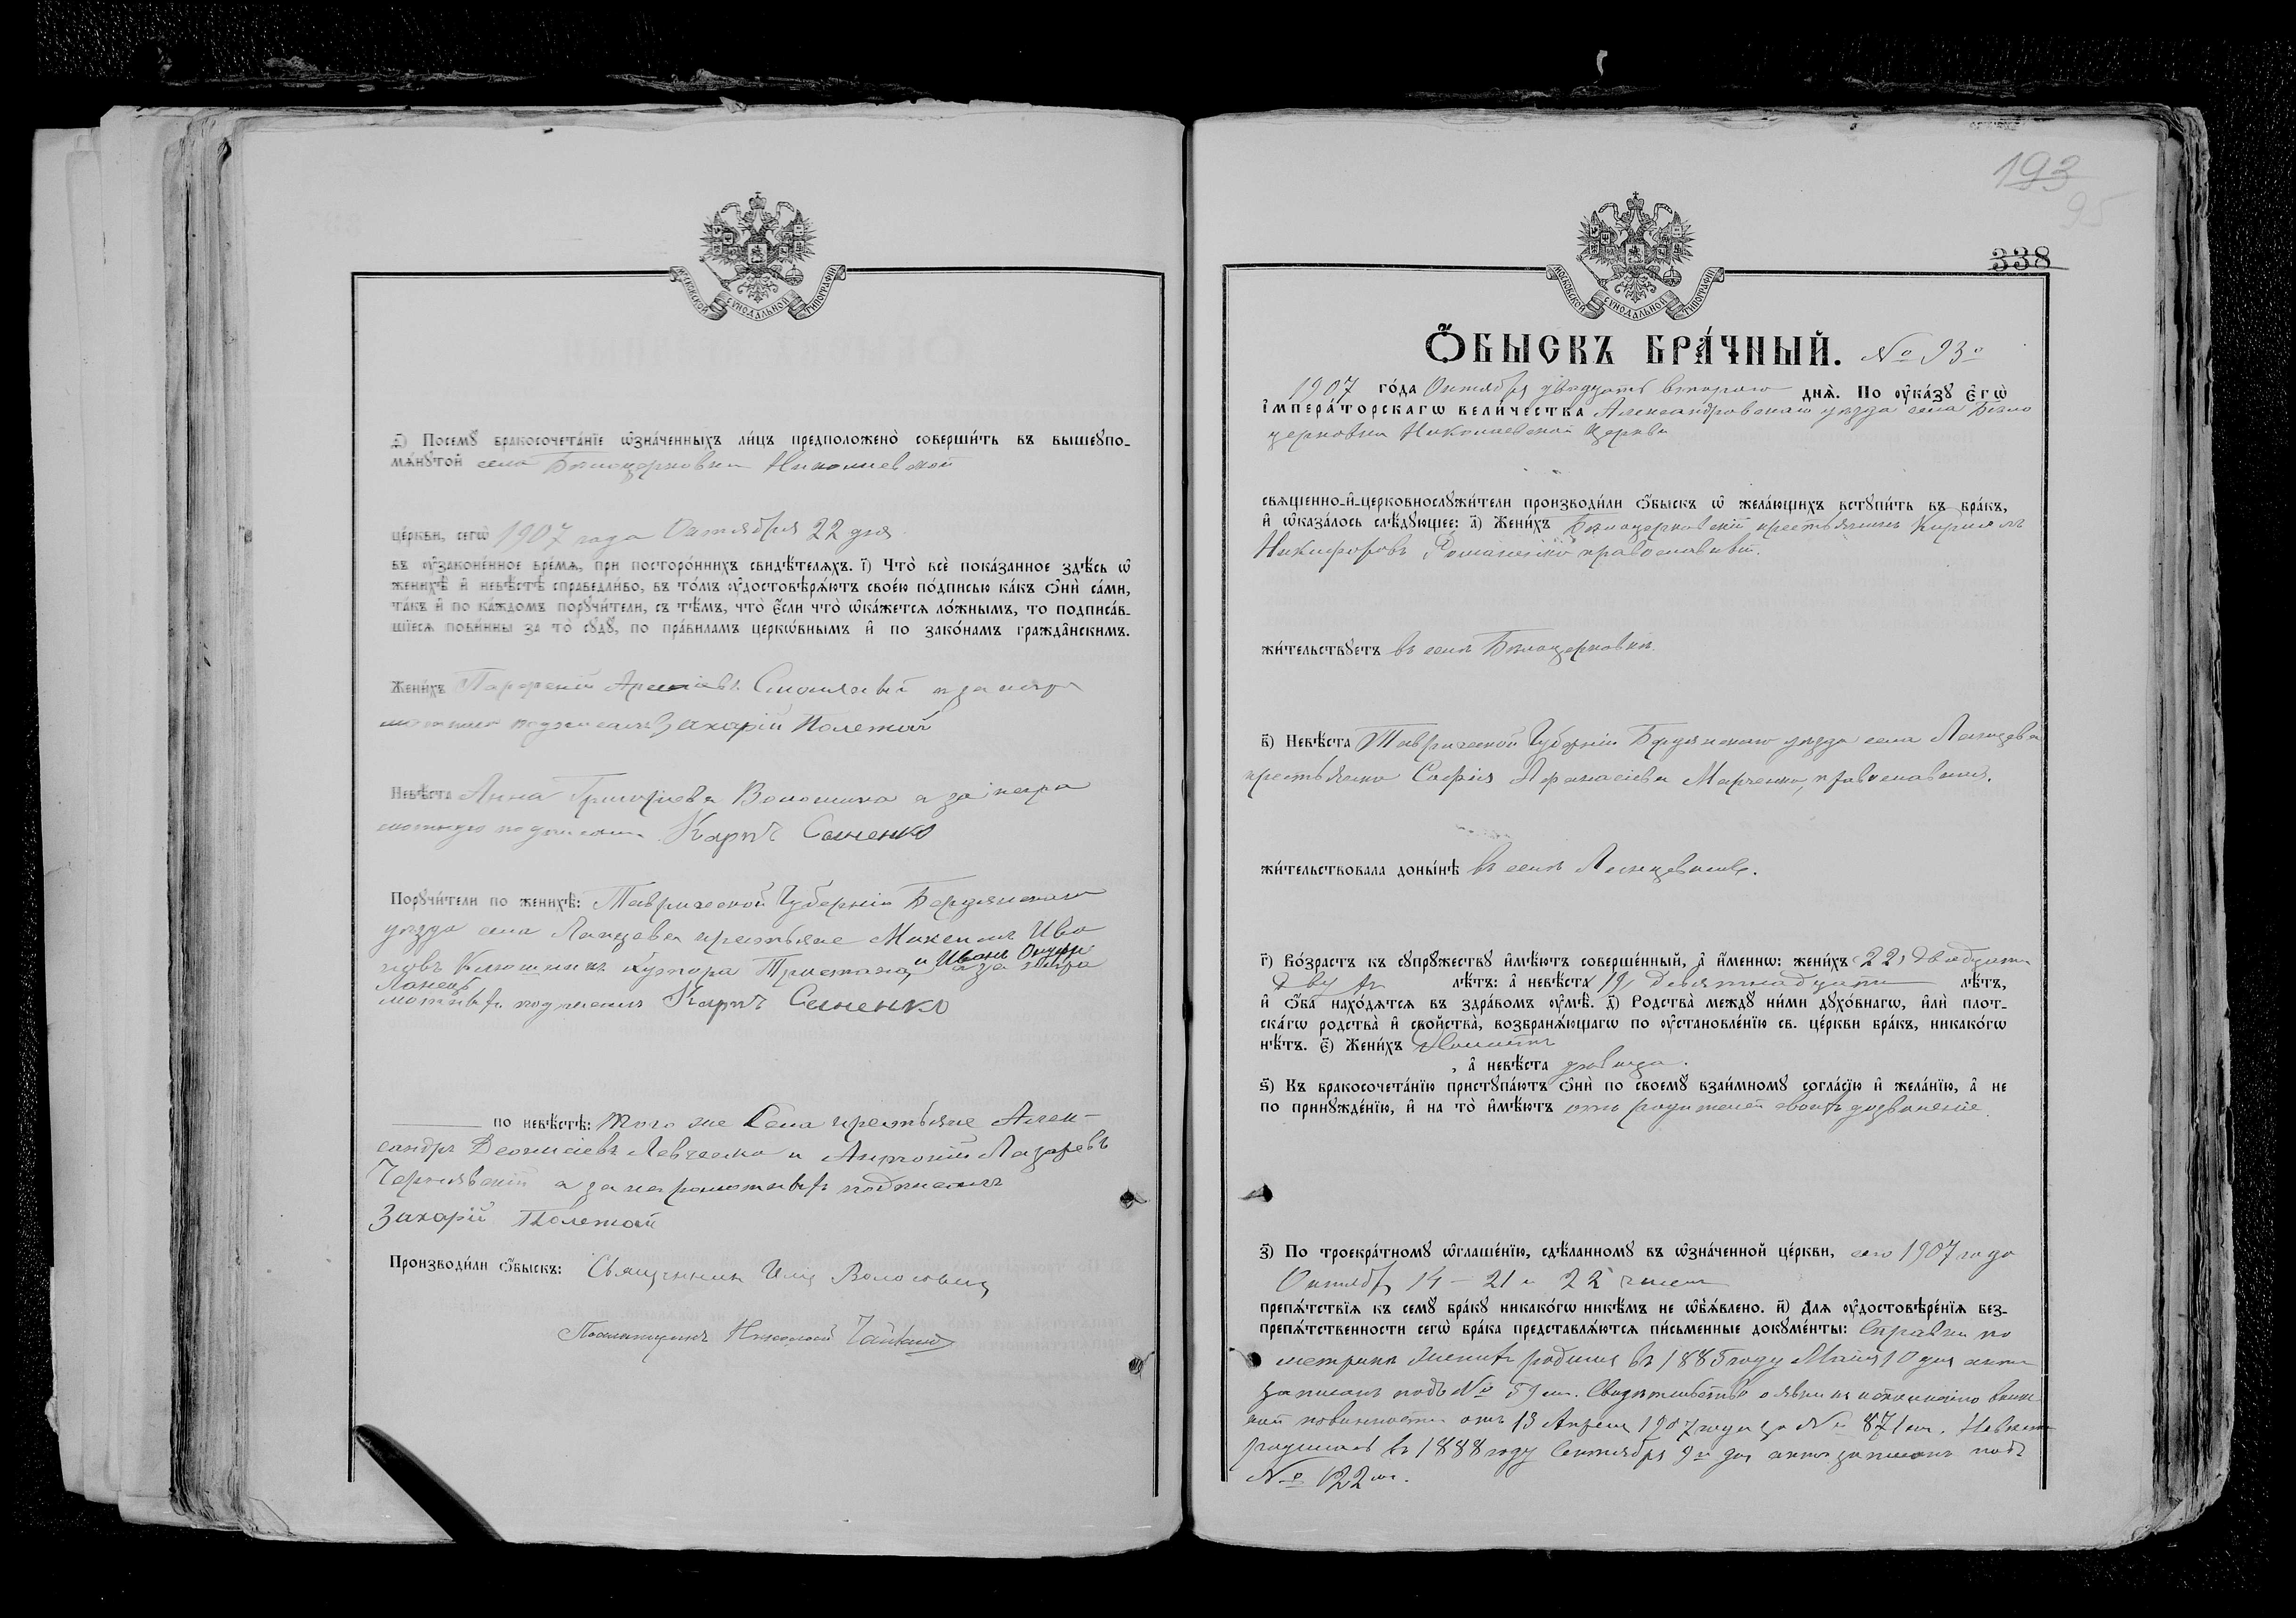 МОСКОВСКОЙ СѴНОДАЛЬНОЙ ТИПОГРАФІИ
д҃) Посемꙋ бракосочета́нїе ѡ҆зна́ченныхъ ли́цъ предположено̀ соверши́ть въ вышеꙋпо-
мѧ́нꙋтой села Бѣлоцерковки Николаевской
це́ркви, сегѡ̀ 1907 года Октября 22 дня
въ ᲂу҆зако́ненное вре́мѧ, при посторо́ннихъ свидѣ́телѧхъ. і҃) Что̀ всѐ пока́занное здѣ́сь ѡ҆
женихѣ̀ и҆ невѣ́стѣ справедли́во, въ то́мъ ᲂу҆достовѣрѧ́ютъ свое́ю по́дписью ка́къ ѻ҆нѝ са́ми,
та́къ и҆ по ка́ждомъ порꙋчи́тели, съ тѣ́мъ, что̀ є҆́сли что̀ ѡ҆ка́жетсѧ ло́жнымъ, то подписа́в-
шїесѧ пови́нны за то̀ сꙋдꙋ̀, по пра́виламъ церко́внымъ и҆ по зако́намъ гражда́нскимъ.
Жени́хъ а за негра
подписалъ Захарій Полежай
Невѣ́ста Анна Григоріева Волошина а за негра
мотную подписалъ Карпъ Синенко
Порꙋчи́тели по женихѣ̀: Таврической Губерніи Бердянскаго
уѣзда села крестьяне Ива
новъ и Иванъ а за негра
мотныхъ подписалъ Карпъ Синенко
по невѣ́стѣ: того же Села крестьяне Алек-
сандръ Левченко и Антоній Лазаревъ
Чернявскій а за неграмотныхъ подписалъ
Захарій Полежай
Производи́ли ѻ҆́быскъ: Священникъ Илія
Псаломщикъ Николай
193
95
338
МОСКОВСКОЙ СѴНОДАЛЬНОЙ ТИПОГРАФІИ
Ѻ҆́БЫСКЪ БРА́ЧНЫЙ. № 93
1907 го́да Октября двадцать второго днѧ̀. По ᲂу҆ка́зꙋ Є҆гѡ̀
і҆мпера́торскагѡ вели́чества Александровскаго уѣзда села Бѣло
церковки Николаевской Церкви
свѧще́нно-и҆-церковнослꙋжи́тели производи́ли ѻ҆́быскъ ѡ҆ жела́ющихъ встꙋпи́ть въ бра́къ,
и҆ ѡ҆каза́лось слѣ́дꙋющее: а҃) Жени́хъ Бѣлоцерковскій крестьянинъ Кириллъ
Никифоровъ православный.
жи́тельствꙋетъ въ селѣ Бѣлоцерковкѣ.
в҃) Невѣ́ста Таврической Губерніи Бердянскаго уѣзда села
крестьянка Софія Афанасіева Марченко, православная.
жи́тельствовала доны́нѣ въ селѣ
г҃) Во́зрастъ къ сꙋпрꙋ́жествꙋ и҆мѣ́ютъ соверше́нный, а҆ и҆́менно: жени́хъ 22, двадцати
двухъ лѣ́тъ: а҆ невѣ́ста 19, девятнадцати лѣ́тъ,
и҆ ѻ҆́ба нахо́дѧтсѧ въ здра́вомъ ᲂу҆мѣ̀. д҃) Родства̀ междꙋ ни́ми дꙋхо́внагѡ, и҆лѝ плот-
ска́гѡ родства̀ и҆ сво́йства, возбранѧ́ющагѡ по ᲂу҆становле́нїю св. це́ркви бра́къ, никако́гѡ
нѣ́тъ. є҃) Жени́хъ холостъ
, а҆ невѣ́ста дѣвица.
ѕ҃) Къ бракосочета́нїю пристꙋпа́ютъ ѻ҆нѝ по своемꙋ̀ взаи́мномꙋ согла́сїю и҆ жела́нїю, а҆ не
по принꙋжде́нїю, и҆ на то̀ и҆мѣ́ютъ отъ родителей своихъ дозволеніе.
з҃) По троекра́тномꙋ ѡ҆глаше́нїю, сдѣ́ланномꙋ въ ѡ҆зна́ченной це́ркви, сего 1907 года
Октября 14 - 21 и 22 чиселъ
препѧ́тствїѧ къ семꙋ̀ бра́кꙋ никако́гѡ никѣ́мъ не ѡ҆б̾ѧ́влено. и҃) Длѧ ᲂу҆достовѣре́нїѧ без-
препѧ́тственности сегѡ̀ бра́ка представлѧ́ютсѧ пи́сьменные докꙋме́нты: Справки по
метрикѣ женихъ родился въ 1885 году Мая 10 дня актъ
записанъ подъ № 51. Свидѣтельство о явкѣ къ исполненію воин-
ской повинности отъ 13 Апрѣля 1907 года за № 871. Невѣста
родилась въ 1888 году Сентября 9 дня актъ записанъ подъ
№ 122.